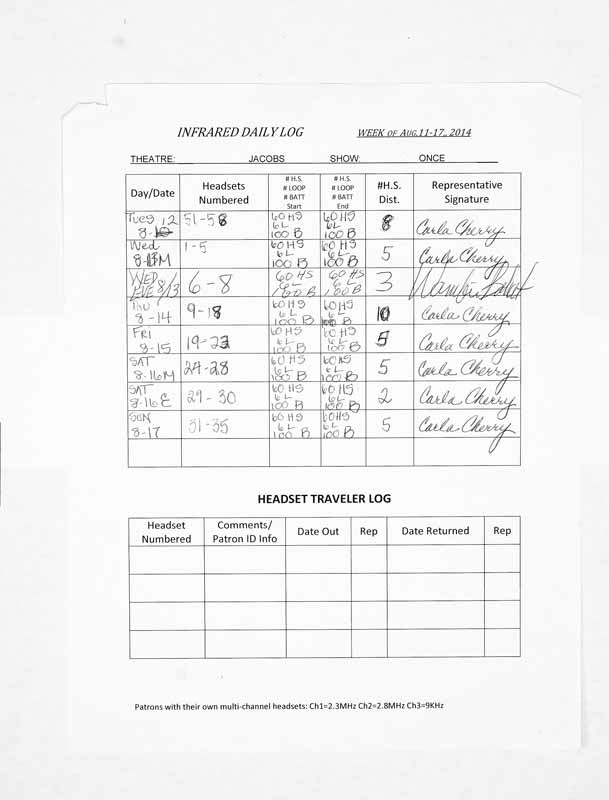 INFRARED DAILY LOG WEEK OF AUG.11-17, 2014
THEATRE: JACOBS SHOW: ONCE
Day/Date Headsets Numbered # H.S. # LOOP # BATT Start # H.S. # LOOP # BATT End #H.S. Dist. Representative Signature
Tues 12 51-58 60 HS 6L 100 B 60 HS 6L 100 B 8 Carla Cherry
Wed 8-13M 1-5 60 HS 6L 100 B 60 HS 6L 100 B 5 Carla Cherry
WED EVE 8/13 6-8 60 HS 6L 100 B 60 HS 6L 100 B 3
THU 8-14 9-18 60 HS 6L 100 B 60 HS 6L 100 B 10 Carla Cherry
FRI 8-15 19-23 60 HS 6L 100 B 60 HS 6L 100 B 5 Carla Cherry
SAT 8-16M 24-28 60 HS 6L 100 B 60 HS 6L 100 B 5 Carla Cherry
SAT 8-16E 29-30 60 HS 6L 100 B 60 HS 6L 100 B 2 Carla Cherry
SUN 8-17 31-35 60 HS 6L 100 B 60 HS 6L 100 B 5 Carla Cherry
HEADSET TRAVELER LOG
Headset Numbered Comments/ Patron ID Info Date Out Rep Date Returned Rep
Patrons with their own multi-channel headsets: Ch1=2.3MHz Ch2=2.8MHz Ch3=9KHz